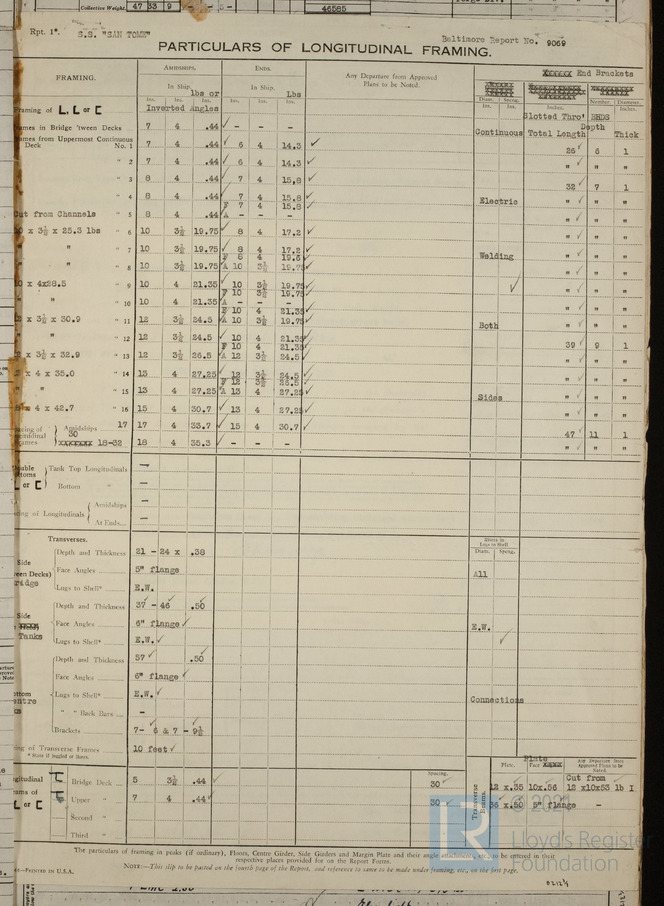 Collective Weight. 47 33 9
46585
Rpt. 1*. S.S. "SAN TOME"
Baltimore Report No. 9069
PARTICULARS OF LONGITUDINAL FRAMING.
FRAMING. AMIDSHIPS. ENDS. Any Departure from Approved Plans to be Noted. End Brackets
In Ship. lbs or In Ship. Lbs
Ins. Ins. Ins. Ins. Ins. Ins. Diam. Spcng. Number. Diameter.
Framing of L, L or C Inverted Angles Ins. Ins. Inches. Inches.
Slotted Thro' BHDS
Frames in Bridge 'tween Decks 7 4 .44 ✓ – – – Continuous Total Length Depth Thick
Frames from Uppermost Continuous Deck No. 1 7 4 .44 ✓ 6 4 14.3 ✓ 26 ✓ 6 1
" 2 7 4 .44 ✓ 6 4 14.3 ✓ " ✓ " "
" 3 8 4 .44 ✓ 7 4 15.8 ✓ 32 ✓ 7 1
" 4 8 4 .44 ✓ 7 4 15.8 ✓ Electric " ✓ " "
F 7 4 15.8
Cut from Channels " 5 8 4 .44 A – – – " ✓ " "
x 3½ x 25.3 lbs " 6 10 3½ 19.75 ✓ 8 4 17.2 ✓ " ✓ " "
" " 7 10 3½ 19.75 ✓ 8 4 17.2 ✓ Welding " ✓ " "
F 8 4 19.6
" " 8 10 3½ 19.75 A 10 3½ 19.75 " ✓ " "
x 4x28.5 " 9 10 4 21.35 ✓ 10 3½ 19.75 ✓ " ✓ " "
F 10 3½ 19.75
" " 10 10 4 21.35 A – – – " ✓ " "
F 10 4 21.35
x 3½ x 30.9 " 11 12 3½ 24.5 ✓ A 10 3½ 19.75 Both " ✓ " "
" " 12 12 3½ 24.5 ✓ 10 4 21.35 ✓ 39 ✓ 9 1
F 10 4 21.35
x 3½ x 32.9 " 13 12 3½ 26.5 ✓ A 12 3½ 24.5 ✓ " ✓ " "
x 4 x 35.0 " 14 13 4 27.25 ✓ 12 3½ 24.5 ✓ " ✓ " "
F 12 3½ 26.5
" " 15 13 4 27.25 A 13 4 27.25 ✓ Sides " ✓ " "
x 4 x 42.7 " 16 15 4 30.7 ✓ 13 4 27.25 ✓ " ✓ " "
Amidships 17 17 4 33.7 ✓ 15 4 30.7 ✓ 47 ✓ 11 1
30 18-32 18 4 35.3 ✓ – – – " ✓ " "
Tank Top Longitudinals –
L or C Bottom " –
of Longitudinals Amidships –
At Ends –
Transverses. Rivets in Lugs to Shell
Diam. Spcng.
Depth and Thickness 21 - 24 x .38
Side Face Angles 5" flange All
Lugs to Shell* E.W.
Depth and Thickness 37 - 46 .50
Side Face Angles 6" flange ✓ E.W.
Tanks Lugs to Shell* E.W. ✓ ✓
Depth and Thickness 57 ✓ .50
Face Angles 6" flange ✓
Lugs to Shell* E.W. ✓ Connections
" " Back Bars –
Brackets 7- 6 & 7 - 9½
of Transverse Frames 10 feet ✓
* State if joggled or liners.
Plate
Spacing. Plate. Face Any Departure from Approved Plans to be Noted.
Bridge Deck 5 3½ .44 ✓ 30 ✓ Transverse Beams. 12 x.35 10x.56 Cut from 12 x10x53 lb I
L or C Upper " 7 4 .44 ✓ 30 ✓ 36 x.50 5" flange –
Second "
Third "
© 2021
LR
Lloyd's Register
Foundation
The particulars of framing in peaks (if ordinary), Floors, Centre Girder, Side Girders and Margin Plate and their angle attachments, etc., to be entered in their
respective places provided for on the Report Forms.
NOTE:—This slip to be pasted on the fourth page of the Report, and reference to same to be made under framing, etc., on the first page.
—PRINTED IN U.S.A.